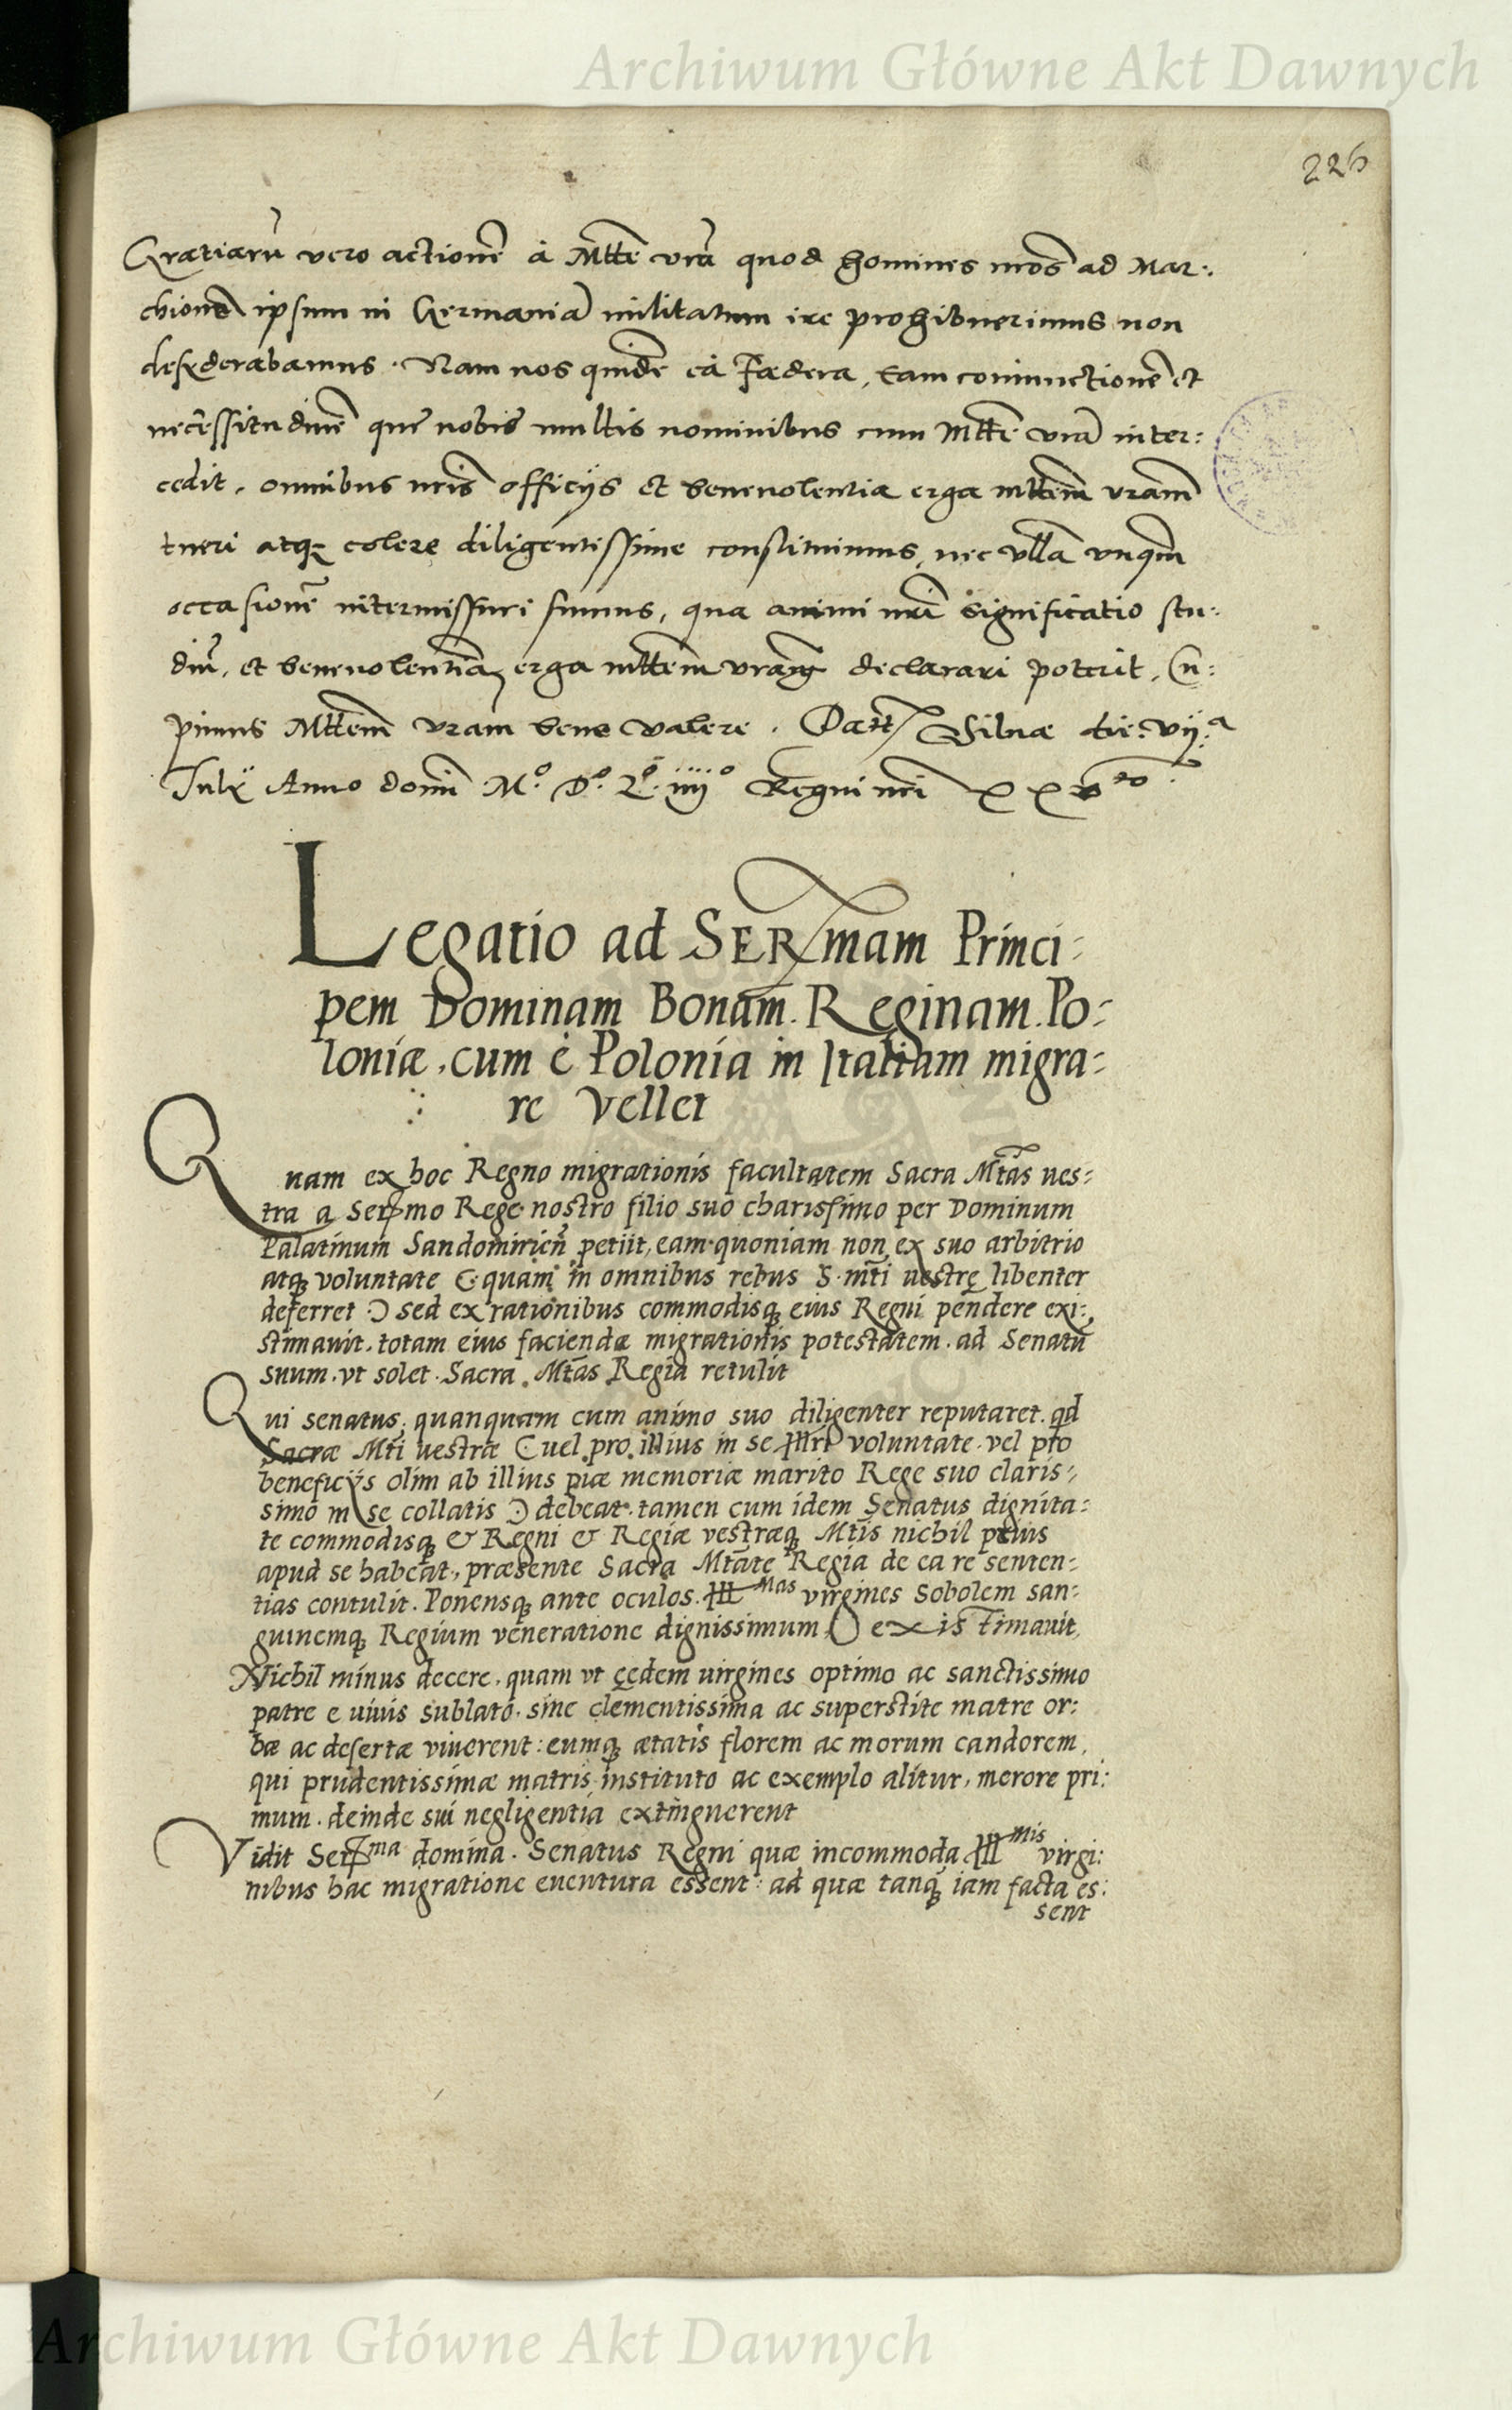 Archiwum Główne Akt Dawnych
226
Gratiarū vero actionē à Mttē vrā quod homines nros ad Mar:
chionē ipsum in Germaniā militatum ire prohibuerimus non
desyderabamus. Nam nos quidē eà Fædera, eam coniunctionē et
necessitudinē quę nobis multis nominibus cum Mttē vrā inter:
cedit, omnibus nris officijs et benevolentia erga mttem vram
tueri atq; colere diligentissime constituimus, nec vllā vnqm
occasionē intermissuri sumus, qua animi nri significatio stu:
diū, et benevolentiā erga mttem vram declarari poterit, Cu:
pimus Mttem vram bene valere. Datt Vilnæ die: vij:a
Julij Anno domi Mº. Dº. Lº. iiijº Regni nri XXVto.
Legatio ad SERmam Princi:
pem Dominam Bonam. Reginam. Po:
loniæ, cum è Polonia in Italiam migra:
re vellet
Quam ex hoc Regno migrationis facultatem Sacra Mtās ves:
tra a Sermo Rege nostro filio suo charissimo per Dominum
Palatinum Sandomirień petijt, eam quoniam non ex suo arbitrio
atq; voluntate (quam in omnibus rebus S. mti vestrę libenter
deferret) sed ex rationibus commodisq; eius Regni pendere exi:
stimauit, totam eius faciendæ migrationis potestatem, ad Senatū
suum, vt solet. Sacra. Mtās Regia retulit
Qui senatus, quanquam cum animo suo diligenter reputaret, qd
Sacræ Mti vestræ (uel pro illius in se voluntate, vel pro
beneficijs olim ab illius piæ memoriæ marito Rege suo claris:
simo in se collatis) debeat, tamen cum idem Senatus dignita:
te commodisq; & Regni & Regiæ vestræq; Mtis nichil prius
apud se habeat, præsente Sacra Mtāte Regia de ea re senten:
tias contulit. Ponensq; ante oculos. Illmas virgines Sobolem san:
guinemq; Regium veneratione dignissimum, existimauit,
Nichil minus decere, quam vt eędem uirgines optimo ac sanctissimo
patre e uiuis sublato, sine clementissima ac superstite matre or:
bæ ac desertæ viuerent: eumq; ætatis florem ac morum candorem,
qui prudentissimæ matris instituto ac exemplo alitur, merore pri:
mum, deinde sui negligentia extinguerent
Vidit Serma domina. Senatus Regni quæ incommoda Illmis virgi:
nibus hac migratione euentura essent: ad quæ tanq; iam facta es:
sent
Archiwum Główne Akt Dawnych